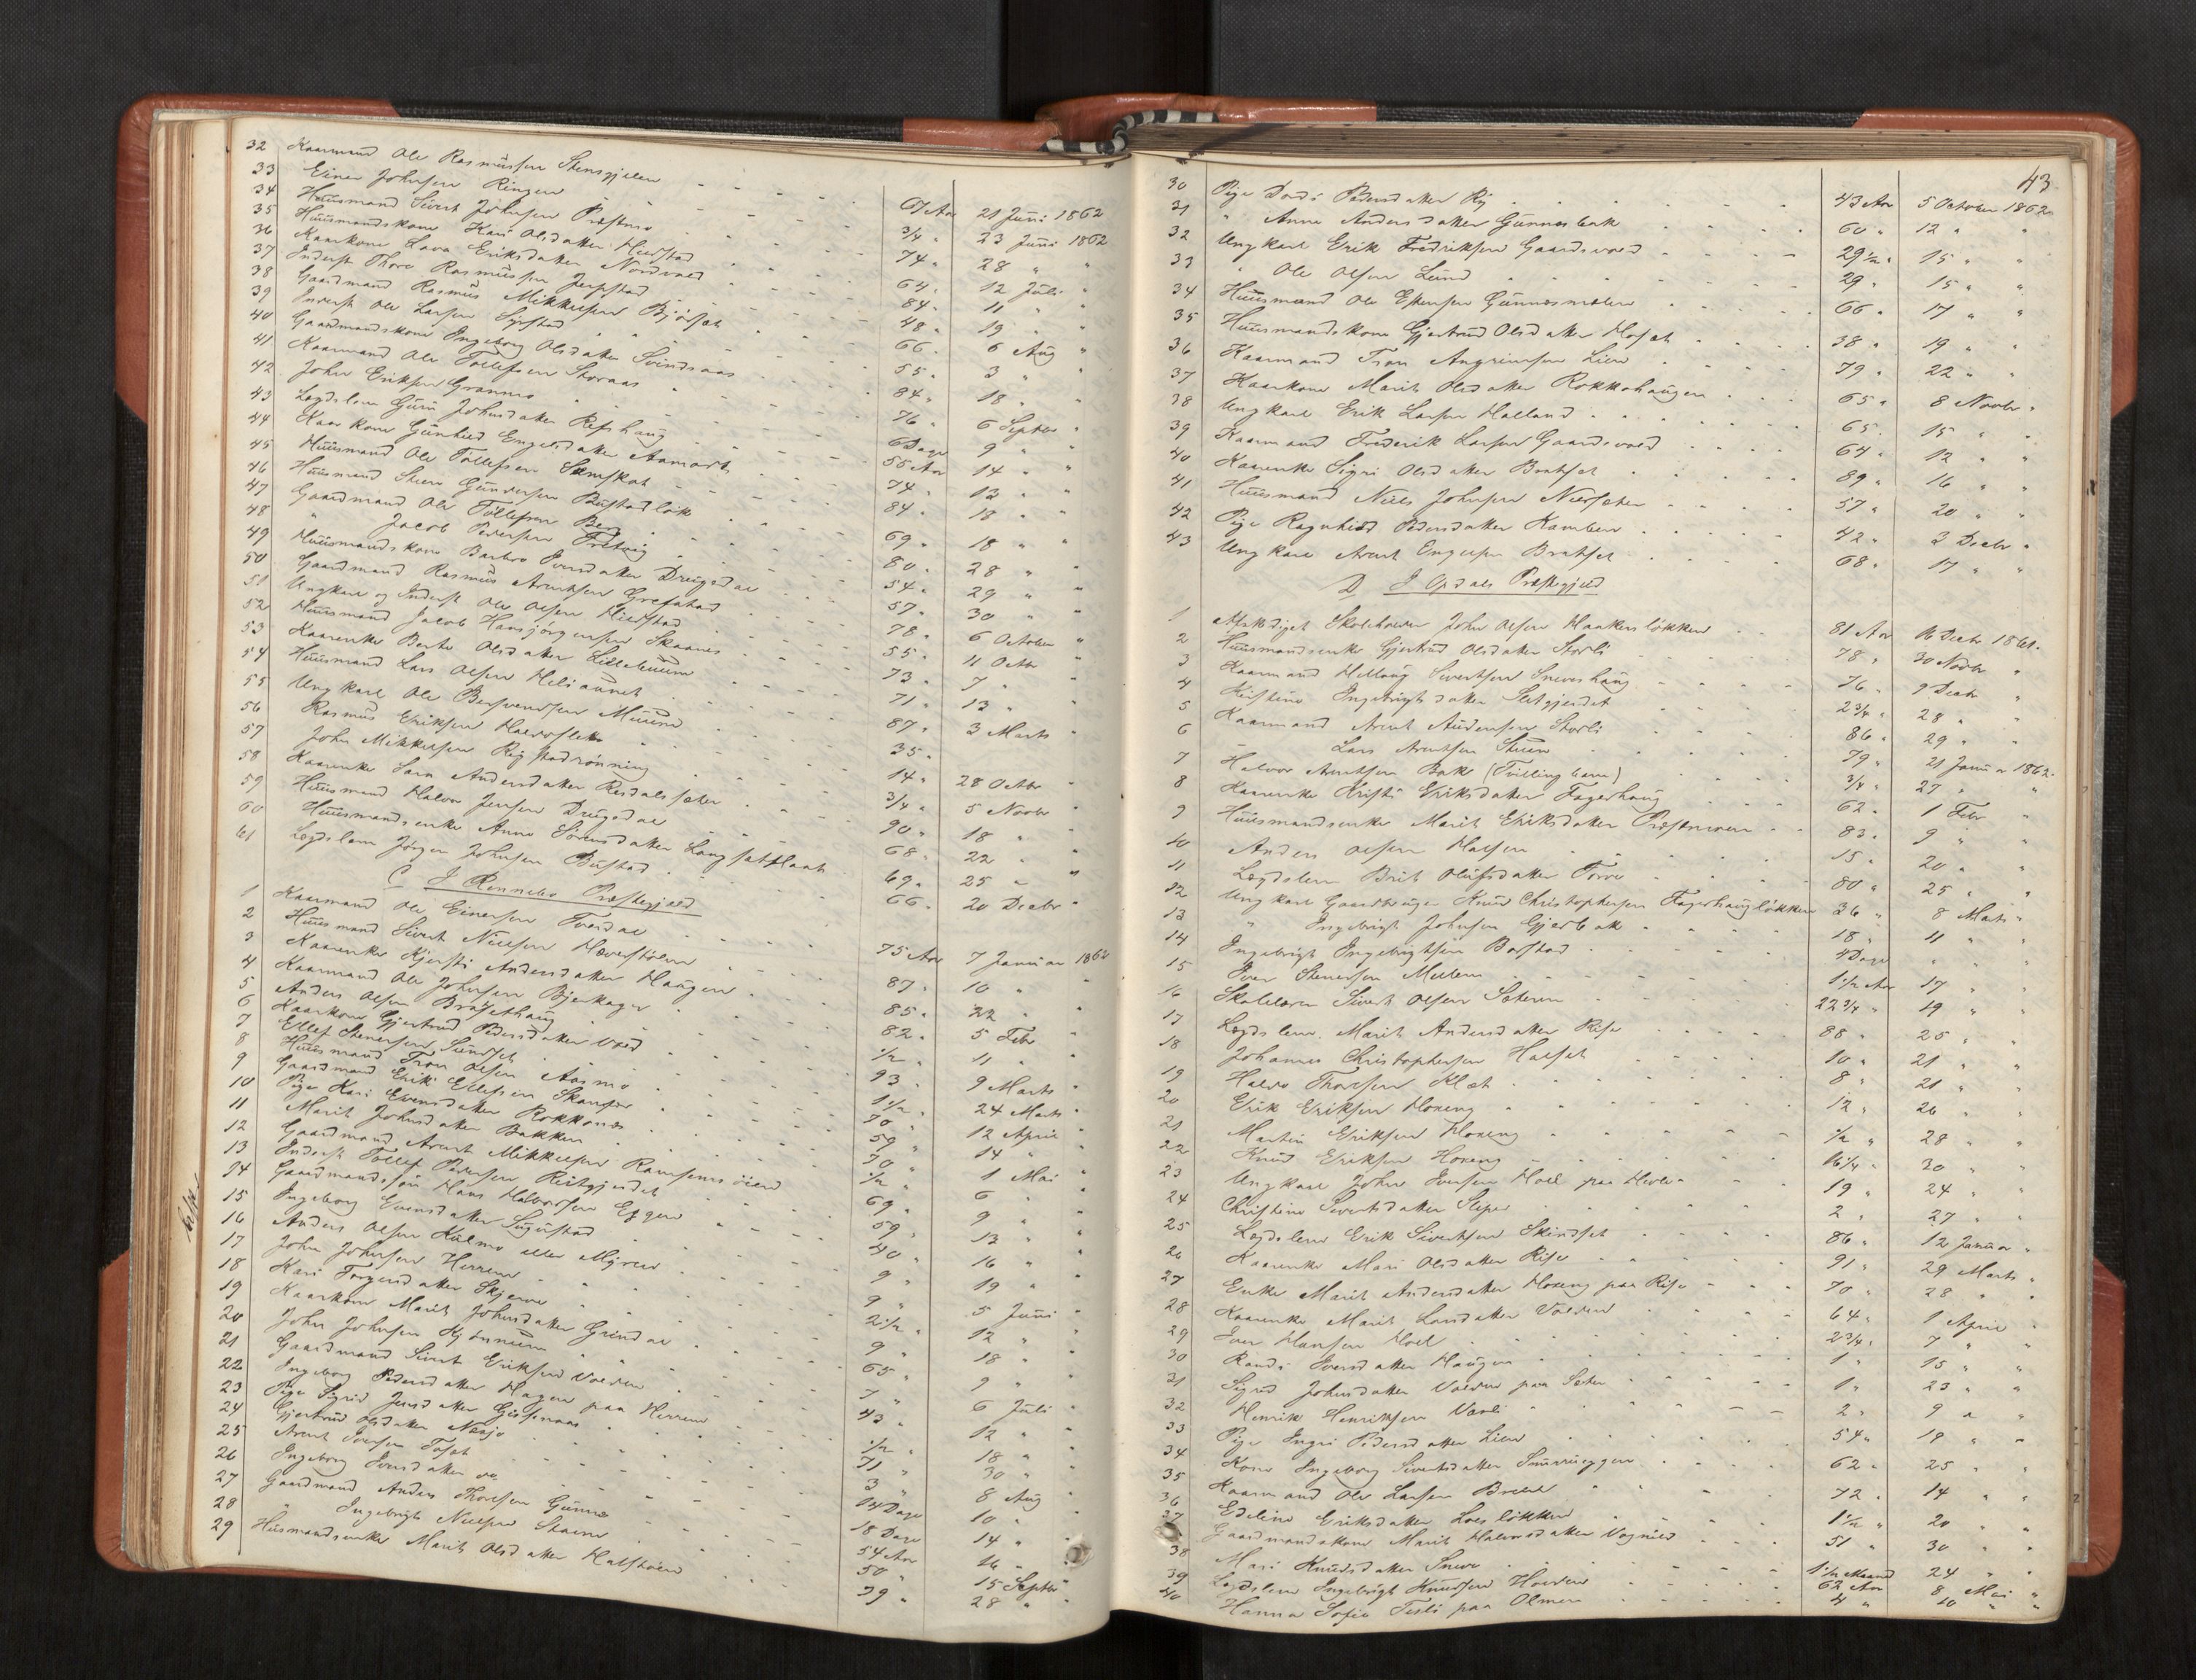 32 Kaarmand Ole Rasmussen Stensgjelen 67 Aar 21 Juni 1862
33 Einer Johnsen Ringen 3/4 " 23 Juni 1862
34 Huusmand Sivert Johnsen Præstmo 74 " 28 " "
35 Huusmandskone Kari Olsdatter Meirstad 64 " 12 Juli "
36 Kaarkone Lava Eriksdatter Nordvold 84 " 11 " "
37 Inderst Thore Rasmussen Jerpstad 48 " 19 " "
38 Gaardmand Rasmus Mikkelsen Bjørset 66 " 6 Aug "
39 Inderst Ole Larsen Syrstad 55 " 3 " "
40 Gaardmandskone Ingeborg Olsdatter Svinsaas 84 " 18 " "
41 Kaarmand Ole Tollefsen Storaas 76 " 6 Septbr "
42 John Eriksen Granmo 6 Dage 9 "
43 Lægdslem Guru Johnsdatter Refshaug 55 Aar 14 " "
44 Kaarkone Gunhild Engelsdatter Aamodt 74 " 12 " "
45 Huusmand Ole Tollefsen 84 " 18 " "
46 Huusmand Steen Gundersen Bustadløk 69 " 18 " "
47 Gaardmand Ole Tollefsen Berg 80 " 28 " "
48 " Jacob Pedersen 54 " 29 " "
49 Huusmandskone Barbro Iversdatter Drugudal 57 " 30 " "
50 Gaardmand Rasmus Arntsen Grefstad 78 " 6 October "
51 Ungkarl og Inderst Ole Olsen Meirstad 55 " 11 Octbr "
52 Huusmand Jacob Hansjørgensen Skaanes 73 " 7 " "
53 Kaarenke Berte Olsdatter Lillebuum 71 " 13 " "
54 Huusmand Lars Olsen Meliaunet 87 " 3 Marts "
55 Ungkarl Ole Bersvendsen Muun 35 "
56 Rasmus Eriksen 14 " 28 Octbr "
57 John Mikkelsen Rigstadrønning 3/4 " 5 Novbr "
58 Kaarenke Sara Andersdatter Resdalssæter 90 " 18 " "
59 Huusmand Halvor Jensen Drugudal 68 " 22 " "
60 Huusmandsenke Anne Sørensdatter 69 " 25 " "
61 Lægdslem Jørgen Johnsen Bustad 66 " 20 Decbr "
C I Rennebo Præstegjeld
1 Kaarmand Ole Einersen Foesdal 75 Aar 7 Januar 1862
2 Huusmand Sivert Nielsen Hæverstølen 87 " 10 " "
3 Kaarenke Kjersti Andersdatter Haugen 85 " 22 " "
4 Kaarmand Ole Johnsen Bjerkager 82 " 5 Febr "
5 Anders Olsen Bræsethaug 1/2 " 11 " "
6 Kaarkone Gjertrud Pedersdatter Vold 93 " 9 Marts "
7 Ellef Stenersen Sundset 1 1/2 " 24 Marts "
8 Huusmand Tron Olsen Aasmo 70 " 12 April "
9 Gaardmand Erik Ellefsen Skamfer 59 " 14 " "
10 Pige Kari Evensdatter Rokkones 70 " 1 Mai "
11 Marit Johnsdatter Bakken 1/2 " 6 " "
12 Gaardmand Arnt Mikkelsen Ramsemsøien 69 " 9 " "
13 Inderst Tollef Pedersen Reitgjerdet 59 " 13 " "
14 Gaardmandssøn Hans Halvorsen Eggen 40 " 16 " "
15 Ingeborg Evensdatter Sugustad 9 " 19 " "
16 Anders Olsen Kulmo eller Myren 9 " 5 Juni "
17 John Johnsen Herrem 2 1/2 " 12 " "
18 Kari Torgersdatter Skjerve 9 " 18 " "
19 Kaarkone Marit Johnsdatter Grindal 65 " 9 " "
20 John Johnsen Kjønnum 7 " 6 Juli "
21 Gaardmand Sivert Eriksen Volden 43 " 12 " "
22 Ingeborg Pedersdatter Hagen paa Herrem 1/2 " 18 " "
23 Pige Sigrid Jensdatter 71 " 30 " "
24 Gjertrud Olsdatter Nesjo 3 " 8 Aug "
25 Arnt Iversen Toset 14 Dage 10 "
26 Ingeborg Iversdatter do 18 Dage 14 "
27 Gaardmand Anders Thoresen Gunnes 54 Aar 16 "
28 " Ingebrigt Nielsen Stavne 50 " 15 Septbr "
29 Huusmandsenke Marit Olsdatter Halstøen 79 " 28 " "
43
30 Pige Dordi Pedersdatter Ry 43 Aar 5 October 1862
31 " Anne Andersdatter Gunnesbak 60 " 12 " "
32 Ungkarl Erik Fredriksen Gaardsvold 29 1/2 " 15 " "
33 " Ole Olsen Lund 29 " 15 " "
34 Huusmand Ole Estensen Gunnesmælen 66 " 17 " "
35 Huusmandskone Gjertrud Olsdatter Moset 38 " 19 " "
36 Kaarmand Tron Angrimsen Lien 79 " 22 " "
37 Kaarkone Marit Olsdatter Rokkohaugen 65 " 8 Novbr "
38 Ungkarl Erik Larsen Halland 65 " 15 " "
39 Kaarmand Frederik Larsen Gaardsvold 64 " 12 " "
40 Kaarenke Sigri Olsdatter Bratset 89 " 16 " "
41 Huusmand Niels Johnsen Nilssæter 57 " 20 " "
42 Pige Ragnhild Pedersdatter Kamben 42 " 3 Decbr "
43 Ungkarl Arnt Engelsen Bratset 68 " 17 " "
D I Opdals Præstegjeld
1 Afskediget Skoleholder John Olsen Haakersløkken 81 Aar 16 Decbr 1861
2 Huusmandsenke Gjertrud Olsdatter Storli 78 " 30 Novbr "
3 Kaarmand Hellaug Sivertsen Sneveshaug 76 " 9 Decbr "
4 Kristine Ingebrigtsdatter Sletgjerdet 2 3/4 " 28 " "
5 Kaarmand Arnt Audensen Storli 86 " 29 " "
6 Lars Arntsen Stuen 79 " 21 Januar 1862
7 Halvor Arntsen Bak (Tvillingbarn) 3/4 " 27 " "
8 Kaarenke Kristi Eriksdatter Fagerhaug 62 " 1 Febr "
9 Huusmandsenke Marit Eriksdatter 83 " 9 " "
10 Anders Olsen Halsen 15 " 20 " "
11 Lægdslem Brit Olufsdatter Torve 80 " 25 " "
12 Ungkarl Gaardbruger Knud Christophersen Fagerhaugløkken 36 " 8 Marts "
13 " Ingebrigt Johnsen Gjerbak 18 " 11 " "
14 Ingebrigt Ingebrigtsen Borstad 4 Dage " " "
15 Iver Stenersen Mellem 1 1/2 Aar 17 " "
16 Skolelærer Sivert Olsen Sæteren 22 3/4 " 19 " "
17 Lægdslem Marit Andersdatter Rise 88 " 25 " "
18 Johannes Christophersen Halset 10 " 21 " "
19 Halvor Thoresen Klæt 8 " 21 " "
20 Erik Eriksen Hoxeng 12 " 26 " "
21 Martin Eriksen Hoxeng 1/2 " 28 " "
22 Knud Eriksen Hoxeng 16 1/4 " 30 " "
23 Ungkarl John Iversen Hoel paa 19 " 24 " "
24 Christine Sivertsdatter Sliper 2 " 27 " "
25 Lægdslem Erik Sivertsen Skindset 86 " 12 Januar "
26 Kaarenke Mari Olsdatter Rise 91 " 29 Marts "
27 Enke Marit Andersdatter Hoxeng paa Rise 70 " 28 " "
28 Kaarenke Marit Larsdatter Volden 64 " 1 April "
29 Iver Hansen Hoel 2 3/4 " 7 " "
30 Randi Iversdatter Haugen 1 " 15 " "
31 Sigrid Johnsdatter Volden paa Sæter 1 " 23 " "
32 Henrik Henriksen Vorli 2 " 9 " "
33 Pige Ingri Pedersdatter Lien 54 " 19 " "
34 Kone Ingeborg Sivertsdatter 62 " 25 " "
35 Kaarmand Ole Larsen 72 " 14 " "
36 Edeline Eriksdatter Loesløkken 1 1/2 " 20 " "
37 Gaardmandskone Marit Halvorsdatter Vognild 51 " 30 " "
38 Mari Knudsdatter Sneve 1 1/2 Maaned 24 " "
39 Lægdslem Ingebrigt Knudsen Hovden 62 Aar 8 Mai "
40 Hanna Sofie Tesli paa Olmen 4 " 10 " "